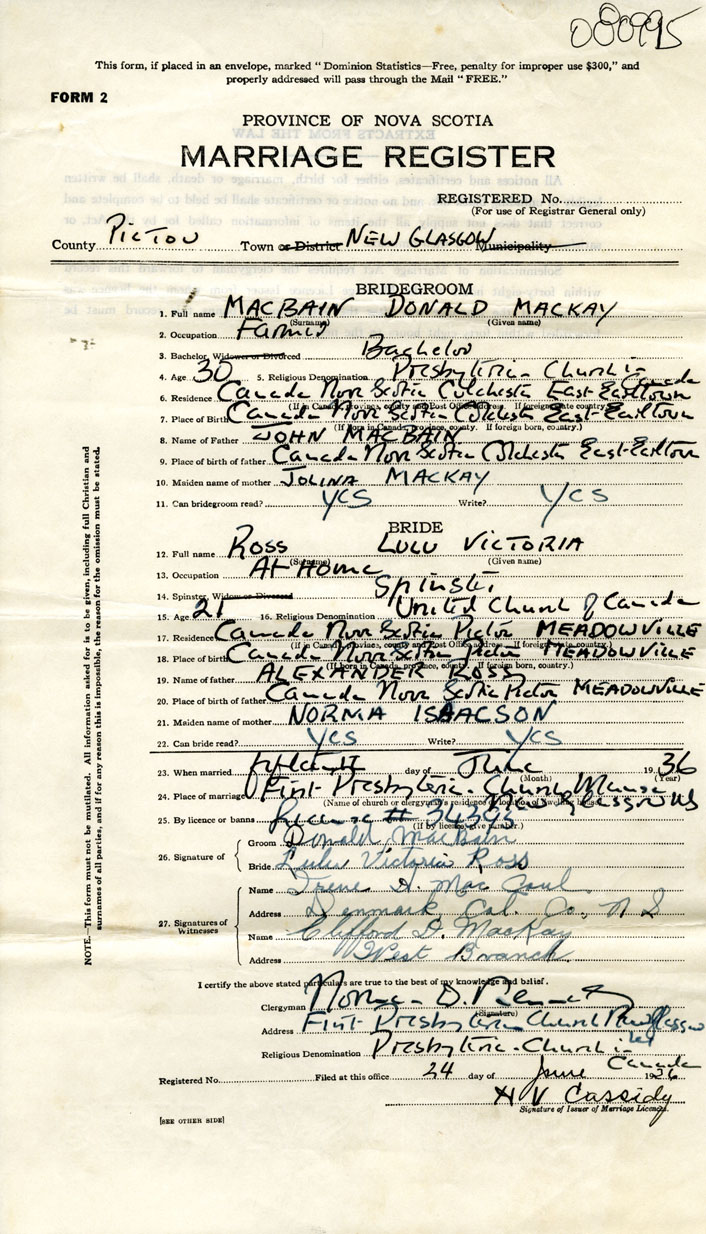 080995
This form, if placed in an envelope, marked "Dominion Statistics—Free, penalty for improper use $300," and
properly addressed will pass through the Mail "FREE."
FORM 2
PROVINCE OF NOVA SCOTIA
MARRIAGE REGISTER
REGISTERED No.
(For use of Registrar General only)
County PICTOU Town or District NEW GLASGOW Municipality
BRIDEGROOM
1. Full name MACBAIN DONALD MACKAY
(Surname) (Given name)
2. Occupation Farmer
3. Bachelor, Widower or Divorced Bachelor
4. Age 30 5. Religious Denomination Presbyterian Church in Canada
6. Residence Canada Nova Scotia Colchester East-Earltown
(If in Canada, province, county and Post Office address. If foreign state country.)
7. Place of Birth Canada Nova Scotia Colchester East-Earltown
(If born in Canada, province, county. If foreign born, country.)
8. Name of Father JOHN MACBAIN
9. Place of birth of father Canada Nova Scotia Colchester East-Earltown
10. Maiden name of mother JOHNA MACKAY
11. Can bridegroom read? YES Write? YES
BRIDE
12. Full name ROSS LULU VICTORIA
(Surname) (Given name)
13. Occupation At Home
14. Spinster, Widow or Divorced Spinster
15. Age 21 16. Religious Denomination United Church of Canada
17. Residence Canada Nova Scotia Pictou MEADOWVILLE
(If in Canada, province, county and Post Office address. If foreign, country.)
18. Place of birth Canada Nova Scotia Pictou MEADOWVILLE
(If born in Canada, province, county. If foreign born, country.)
19. Name of father ALEXANDER ROSS
20. Place of birth of father Canada Nova Scotia Pictou MEADOWVILLE
21. Maiden name of mother NORMA ISAACSON
22. Can bride read? YES Write? YES
23. When married day of June 1936
(Month) (Year)
24. Place of marriage First Presbyterian Church Manse
(Name of church or clergyman's residence or location of dwelling house)
New Glasgow NS
25. By licence or banns License # 34395
(If by licence, give number.)
26. Signature of Groom Donald MacBain
Bride Lulu Victoria Ross
27. Signatures of Witnesses
Name Irene D. Mac
Address Denmark Col. Co. N S
Name Clifford D. MacKay
Address West Branch
I certify the above stated particulars are true to the best of my knowledge and belief.
Clergyman Norman D.
(Signature)
Address First Presbyterian Church New Glasgow
Religious Denomination Presbyterian Church in Canada
Registered No. Filed at this office 24 day of June 1936
H V Cassidy
Signature of Issuer of Marriage Licences.
[SEE OTHER SIDE]
NOTE.—This form must not be mutilated. All information asked for is to be given, including full Christian and
surnames of all parties, and if for any reason this is impossible, the reason for the omission must be stated.